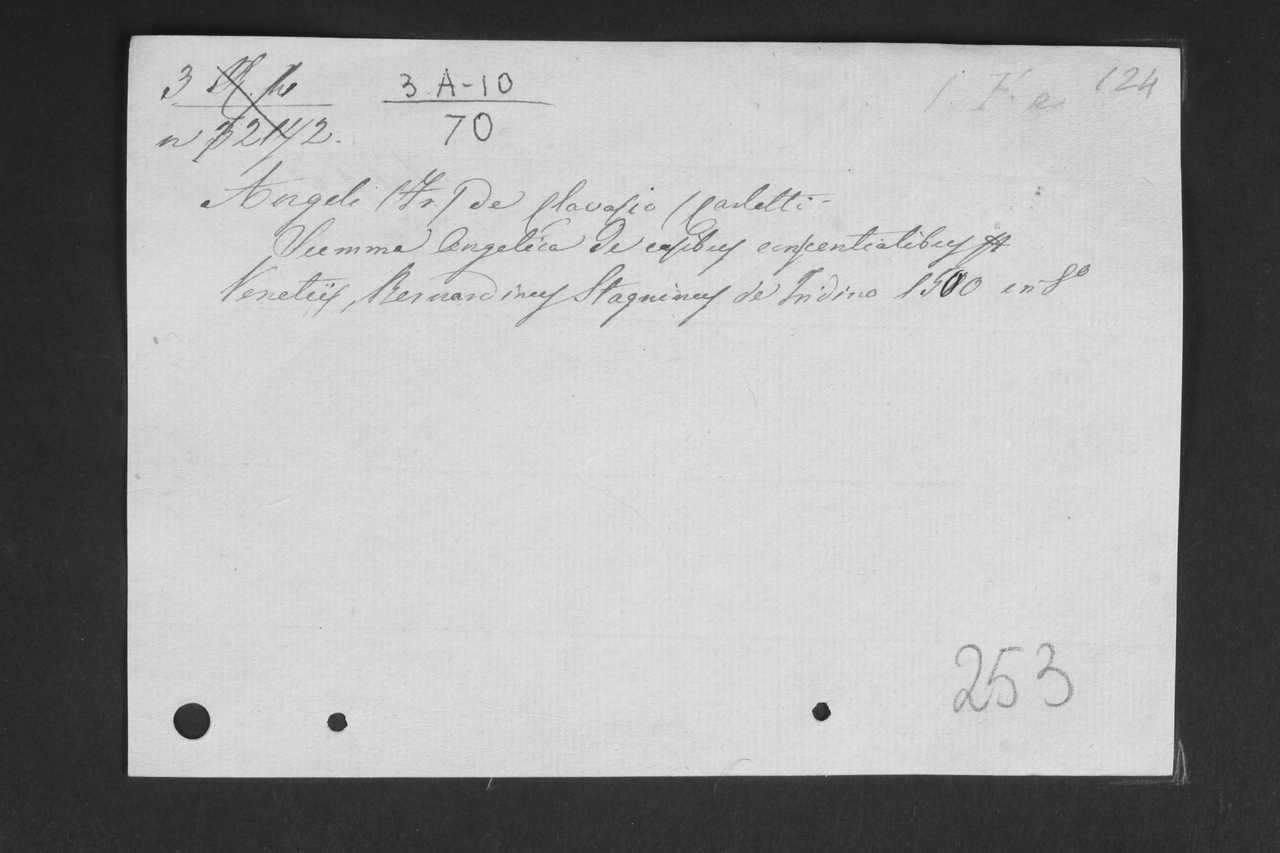 3
3 A-10
124
n 32142.
70
Angeli (Fr.) de Clavasio Carletti-
Summa Angelica de casibus conscentialibus
Venetiis, Bernardinus Stagninus de Tridino 1500 en 8º
253